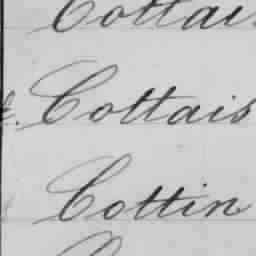 Cottai
Cottais
Cottin